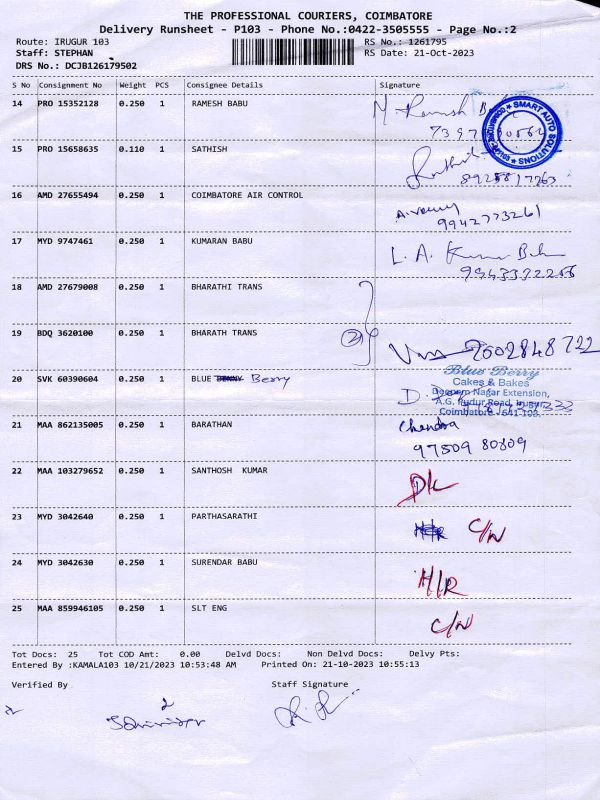 THE PROFESSIONAL COURIERS, COIMBATORE
Delivery Runsheet - P103 - Phone No.:0422-3505555 - Page No.:2
Route: IRUGUR 103 RS No.: 1261795
Staff: STEPHAN RS Date: 21-Oct-2023
DRS No.: DCJB126179502
S No Consignment No Weight PCS Consignee Details Signature
14 PRO 15352128 0.250 1 RAMESH BABU
SMART AUTO SOLUTIONS
15 PRO 15658635 0.110 1 SATHISH
8925817763
16 AMD 27655494 0.250 1 COIMBATORE AIR CONTROL
9942773261
17 MYD 9747461 0.250 1 KUMARAN BABU L. A.
9943332266
18 AMD 27679008 0.250 1 BHARATHI TRANS
19 BDQ 3620100 0.250 1 BHARATH TRANS
2
9002848722
20 SVK 60390604 0.250 1 BLUE Berry
Blue Berry
Cakes & Bakes
Deepam Nagar Extension,
A.G. Pudur Road, Irugur,
Coimbatore - 641 103.
21 MAA 862135005 0.250 1 BARATHAN Chandra
97509 80809
22 MAA 103279652 0.250 1 SANTHOSH KUMAR D/L
23 MYD 3042640 0.250 1 PARTHASARATHI C/N
24 MYD 3042630 0.250 1 SURENDAR BABU H/R
25 MAA 859946105 0.250 1 SLT ENG C/N
Tot Docs: 25 Tot COD Amt: 0.00 Delvd Docs: Non Delvd Docs: Delvy Pts:
Entered By :KAMALA103 10/21/2023 10:53:48 AM Printed On: 21-10-2023 10:55:13
Verified By Staff Signature